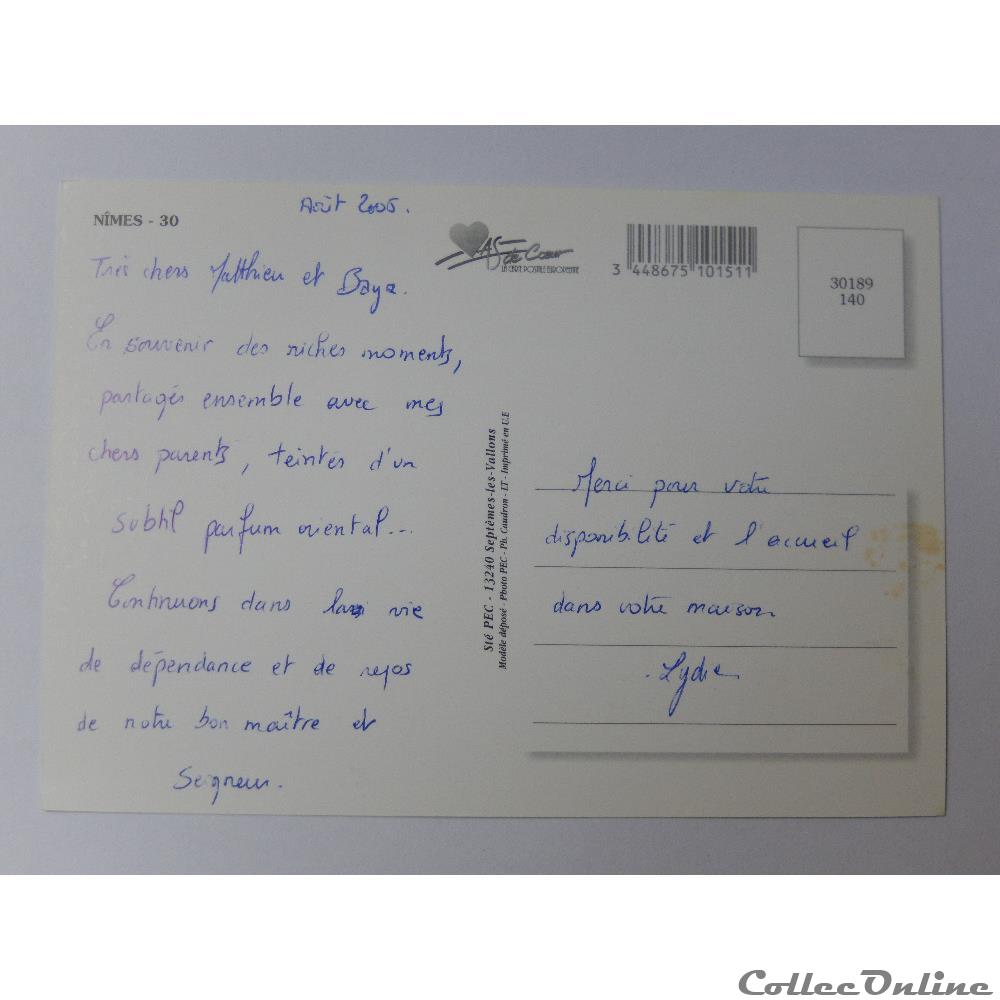 NÎMES - 30
Août 2005.
Très chers Matthieu et Baya.
En souvenir des riches moments,
partagés ensemble avec mes
chers parents, teintés d'un
subtil parfum oriental...
Continuons dans la vie
de dépendance et de repos
de notre bon maître et
Seigneur.
AS de Cœur
LA CARTE POSTALE EUROPEENNE
3 448675 101511
30189
140
Sté PEC - 13240 Septèmes-les-Vallons
Modèle déposé - Photo PEC - Ph. Caudron - IT - Imprimé en U.E
Merci pour votre
disponibilité et l'accueil
dans votre maison
Lydie
CollecOnline